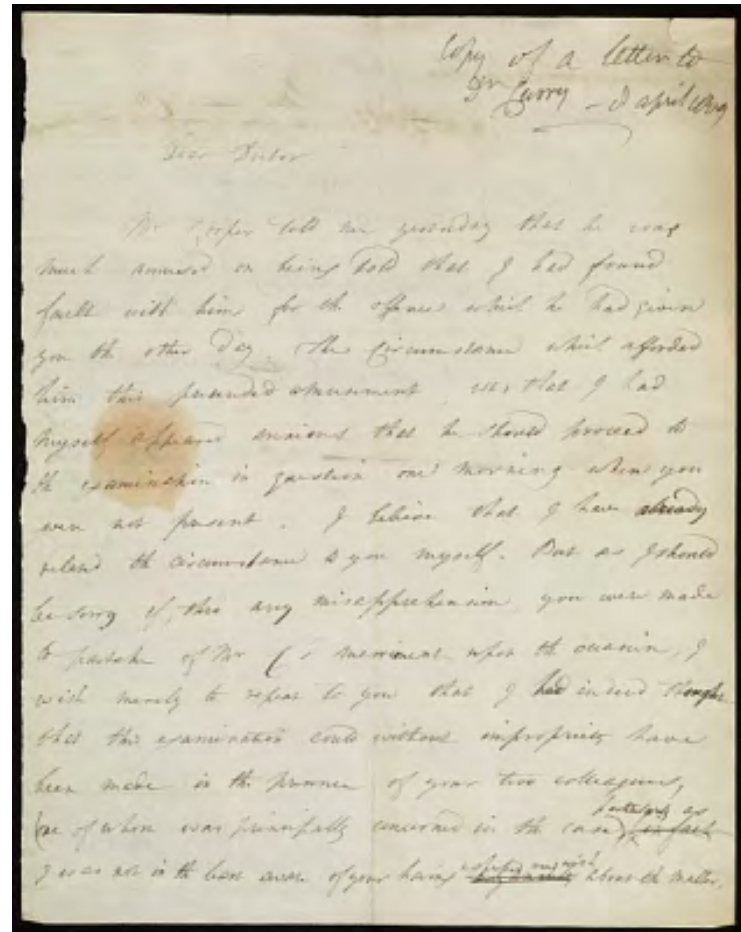 Copy of a letter to
Dr Curry - 8 april 1809
Dear Doctor
Mr Cooper told me yesterday that he was
much amused on being told that I had found
fault with him for the offence which he had given
you the other day. The circumstance which afforded
him this pretended amusement was that I had
myself appeared anxious that he should proceed to
th examination in question one morning when you
were not present. I believe that I have already
related th circumstance to you myself. But as I should
be sorry if, thro any misapprehension, you were made
to partake of Mr C's merriment upon th occasion, I
wish merely to repeat to you that I had indeed thought
that this examination could without impropriety have
been made in the presence of your two colleagues,
one of whom was principally concerned in the case, particularly as
I was not in th least aware of your having about the matter.